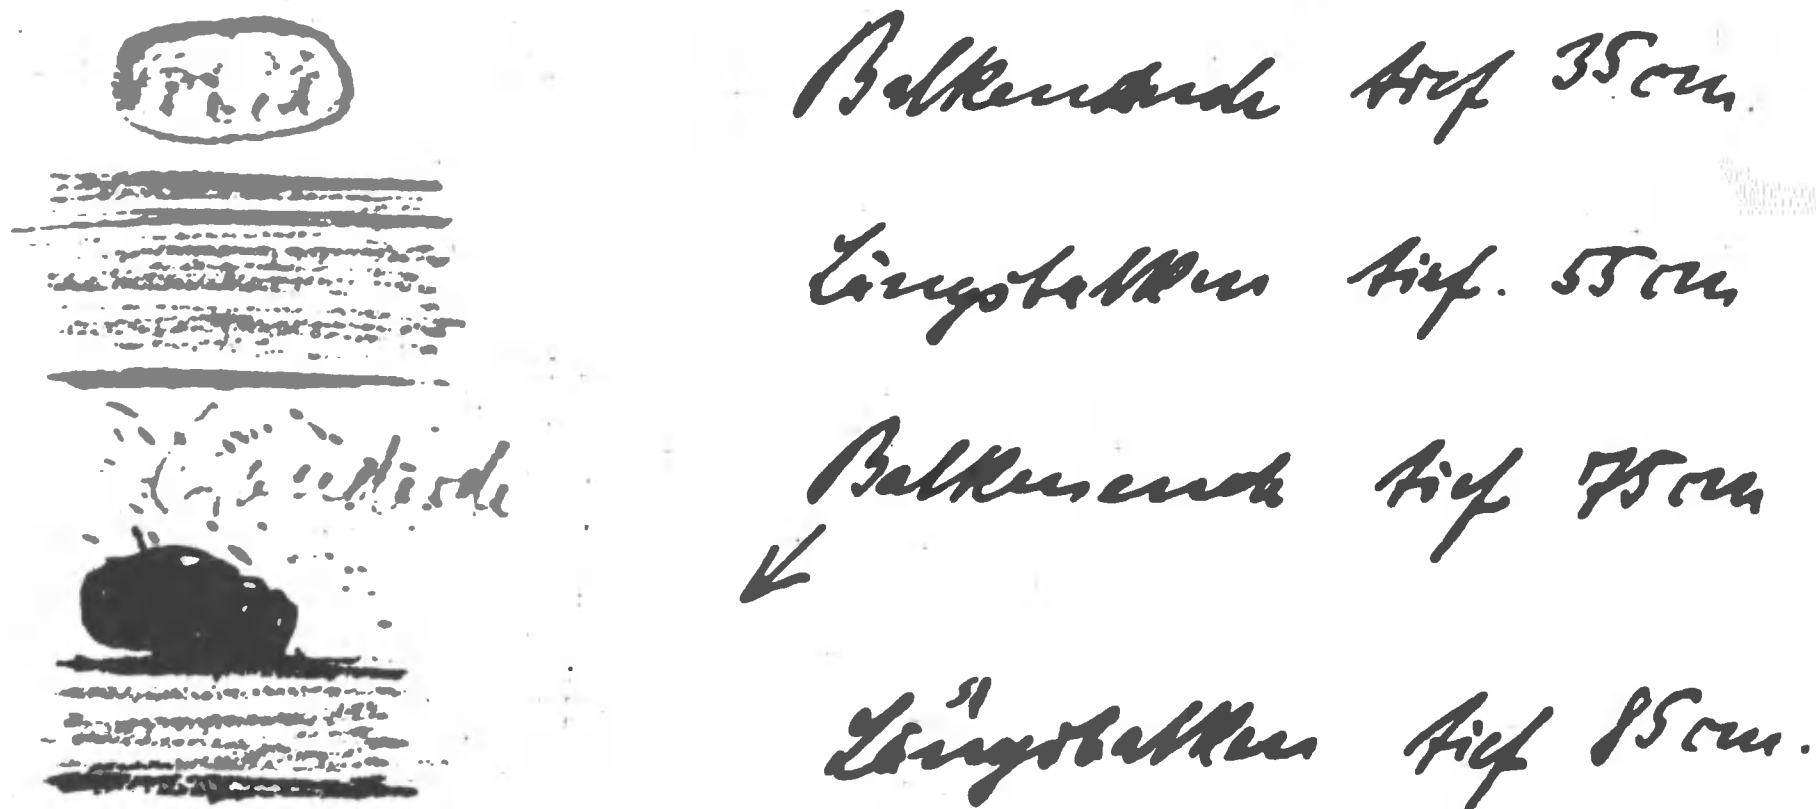 Balkenende tief 35 cm.
Längsbalken tief. 55 cm
Balkenende tief 75 cm
Längsbalken tief 85 cm.